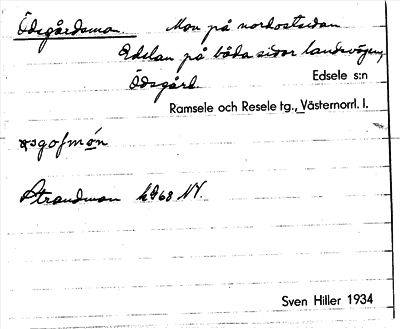 Ödsgårdsmon. Mon på nordostsidan
Edslan på båda sidor landsvägen,
Ödsgård. Edsele s:n
Ramsele och Resele tg., Västernorrl. l.
Strandmon kd 68 NV.
Sven Hiller 1934